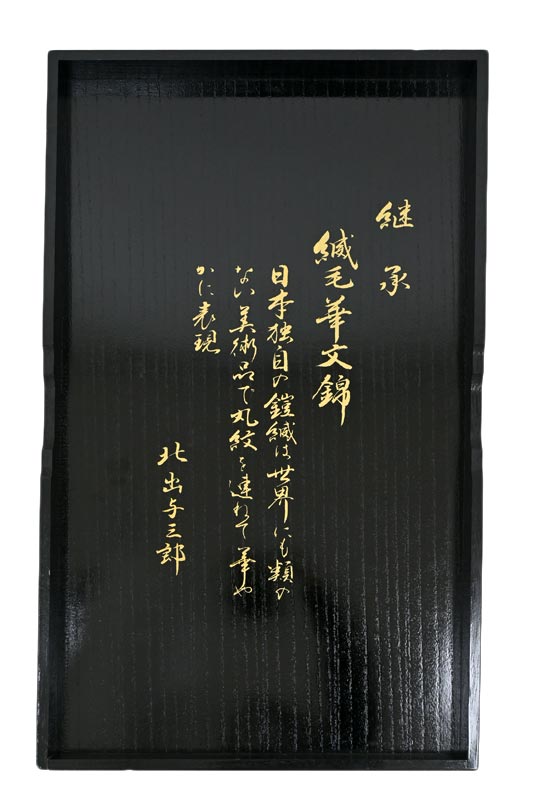 継承
縅毛華文錦
日本独自の鎧縅は世界にも類の
ない美術品で丸紋を連ねて華や
かに表現
北出与三郎